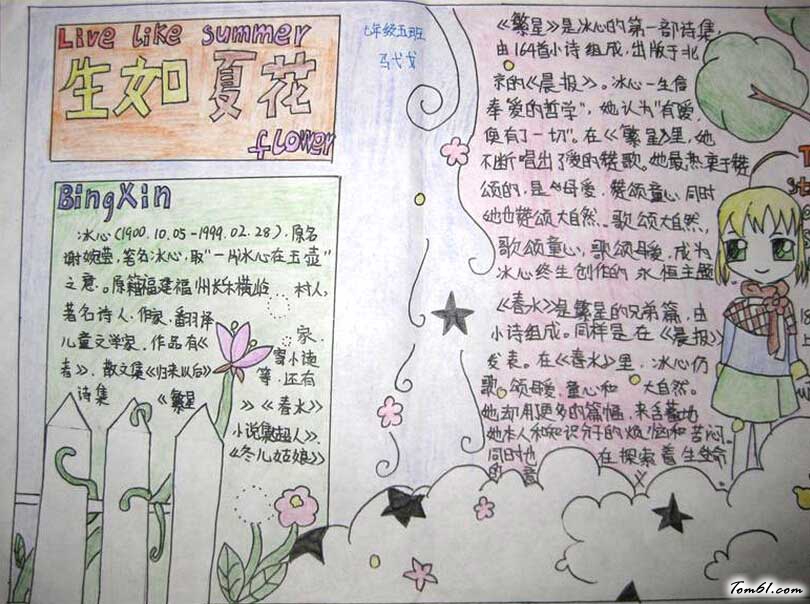 Live like summer
生如夏花
flower
七年级五班
马弋戈
BingXin
冰心(1900.10.05-1999.02.28),原名
谢婉莹,笔名冰心,取"一片冰心在玉壶"
之意。原籍福建福州长乐横岭村人,
著名诗人,作家,翻译家,
儿童文学家,作品有《寄小读
者》,散文集《归来以后》等,还有
诗集《繁星》《春水》
小说集超人》、
《冬儿姑娘》
《繁星》是冰心的第一部诗集,
由164首小诗组成,出版于北
京的《晨报》。冰心一生信
奉爱的哲学",她认为"有爱,
便有了一切"。在《繁星》里,她
不断唱出了爱的赞歌。她最热衷于赞
颂的,是母爱,赞颂童心,同时
她也赞颂大自然、歌颂大自然,
歌颂童心,歌颂母爱,成为
冰心终生创作的永恒主题
《春水》是繁星的兄弟篇,由
小诗组成。同样是在《晨报》
发表。在《春水》里,冰心仍
歌颂母爱,童心和大自然。
她却用更多的篇幅,来含蓄地
她本人和知识分子的烦恼和苦闷。
同时也在探索着生命
的意
Tom61.com